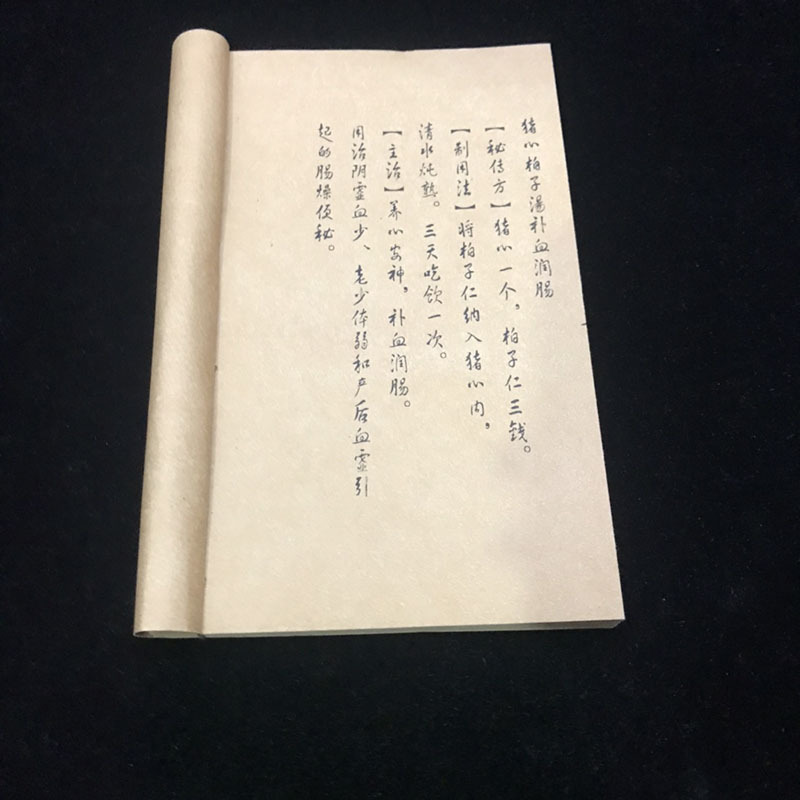 猪心柏子湯补血润肠
【秘传方】猪心一个，柏子仁三钱。
【制用法】将柏子仁纳入猪心内，
清水炖熟。三天吃饮一次。
【主治】养心安神，补血润肠。
用治阴虚血少、老少体弱和产后血虚引
起的肠燥便秘。